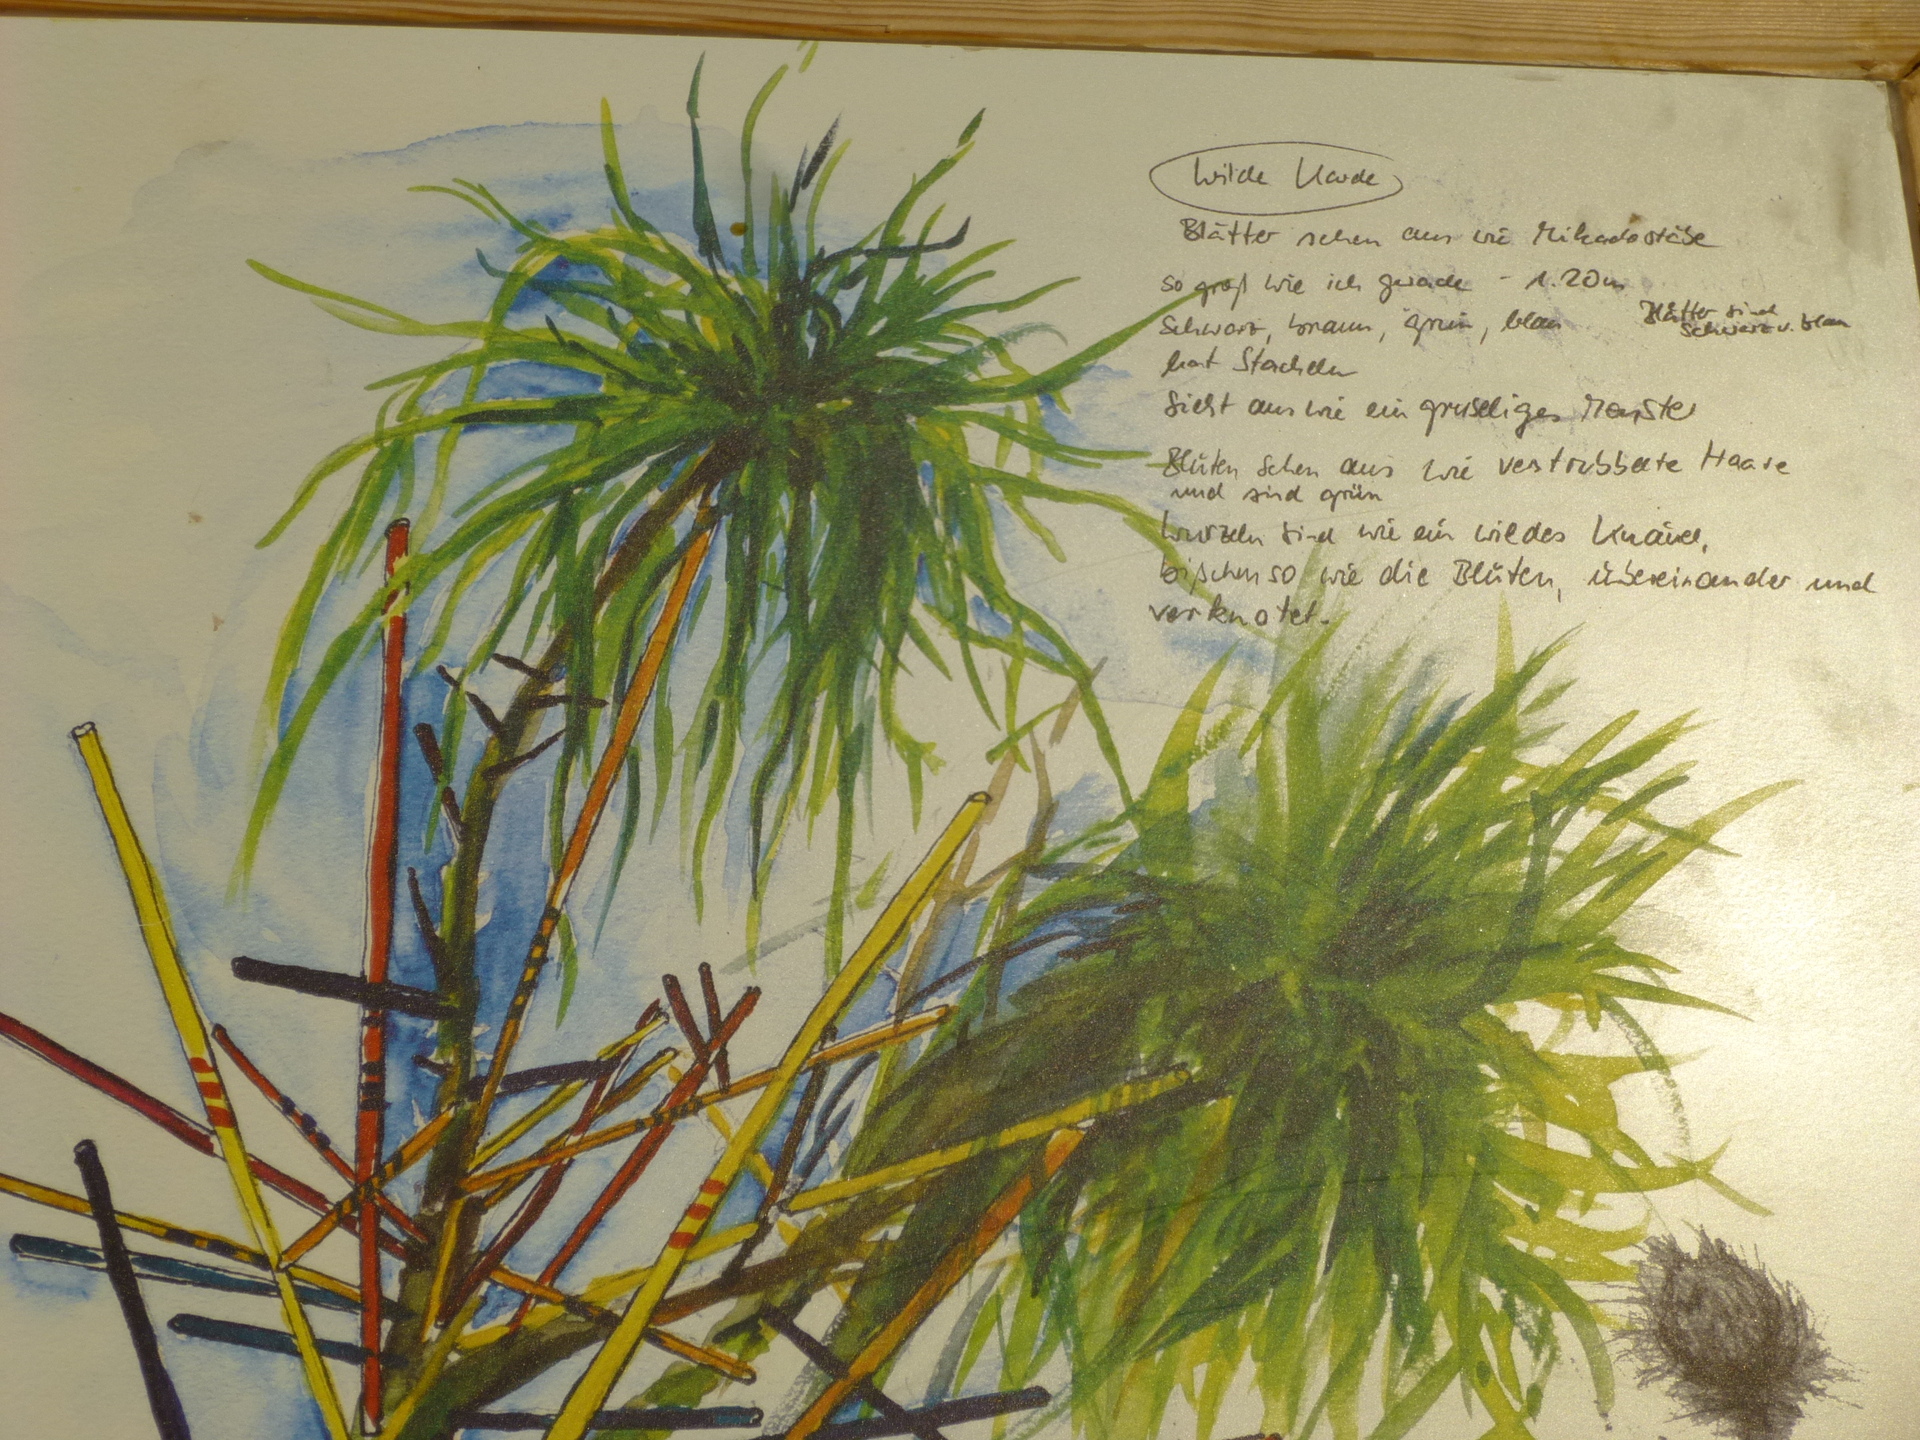 Wilde Karde
Blätter sehen aus wie Mikadostäbe
so groß wie ich gerade - 1.20m
Schwarz, braun, grün, blau
Blätter sind
Schwarz u. blau
hat Stacheln
Sieht aus wie ein gruseliges Monster
Blüten sehen aus wie verstrubbelte Haare
und sind grün
Wurzeln sind wie ein wildes Knäuel,
bißchen so wie die Blüten, übereinander und
verknotet.